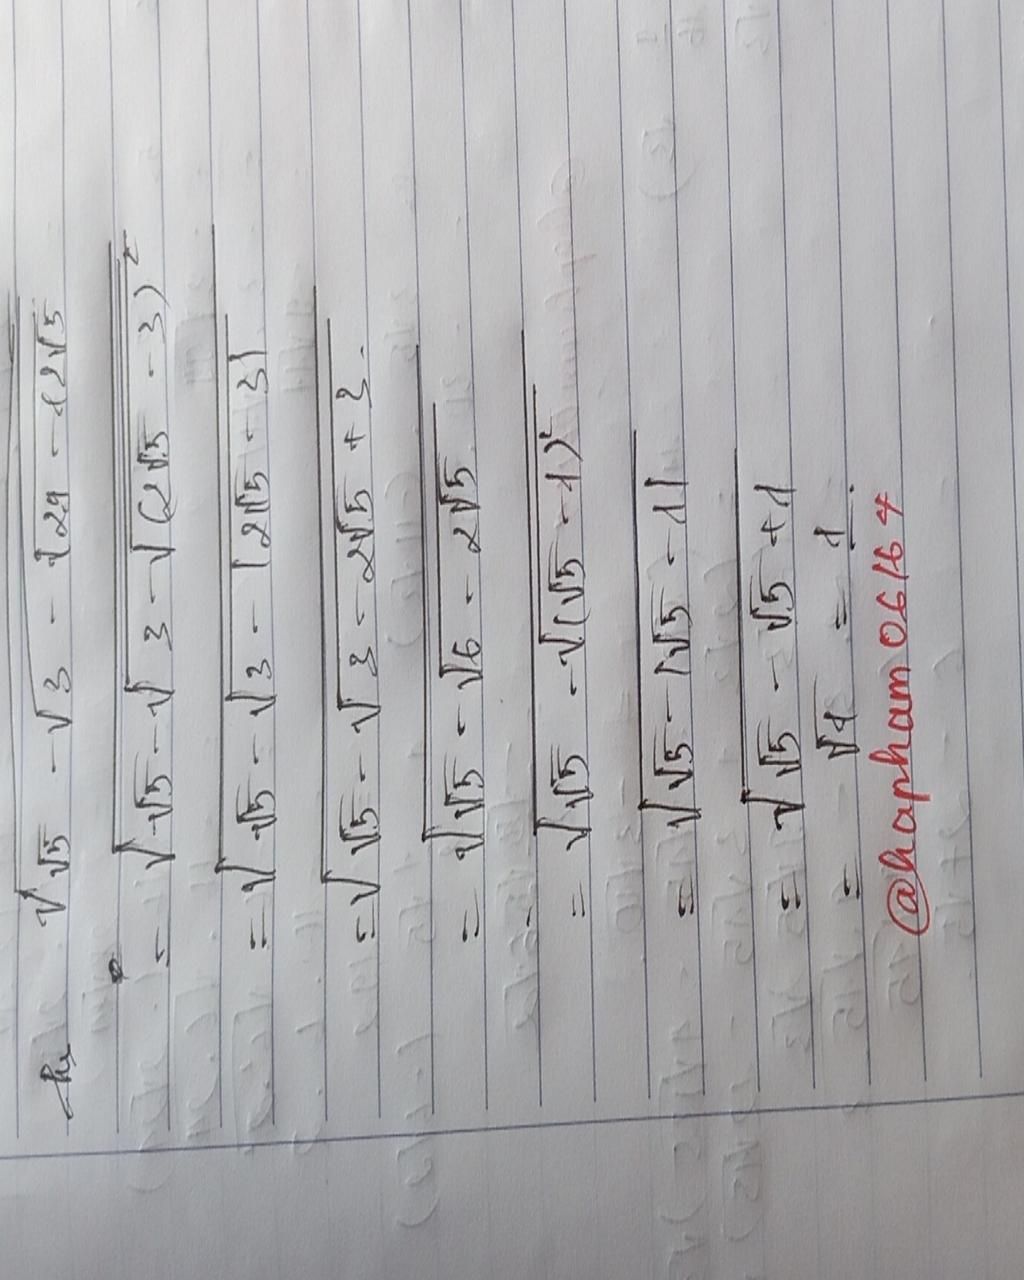 h, √(√5 - √(3 - √(29 - 12√5)))
= √(√5 - √(3 - √(2√5 - 3)²))
= √(√5 - √(3 - |2√5 - 3|))
= √(√5 - √(3 - 2√5 + 3)).
= √(√5 - √(6 - 2√5))
= √(√5 - √(√5 - 1)²)
= √(√5 - |√5 - 1|)
= √(√5 - √5 + 1)
= √1 = 1.
@hapham06164